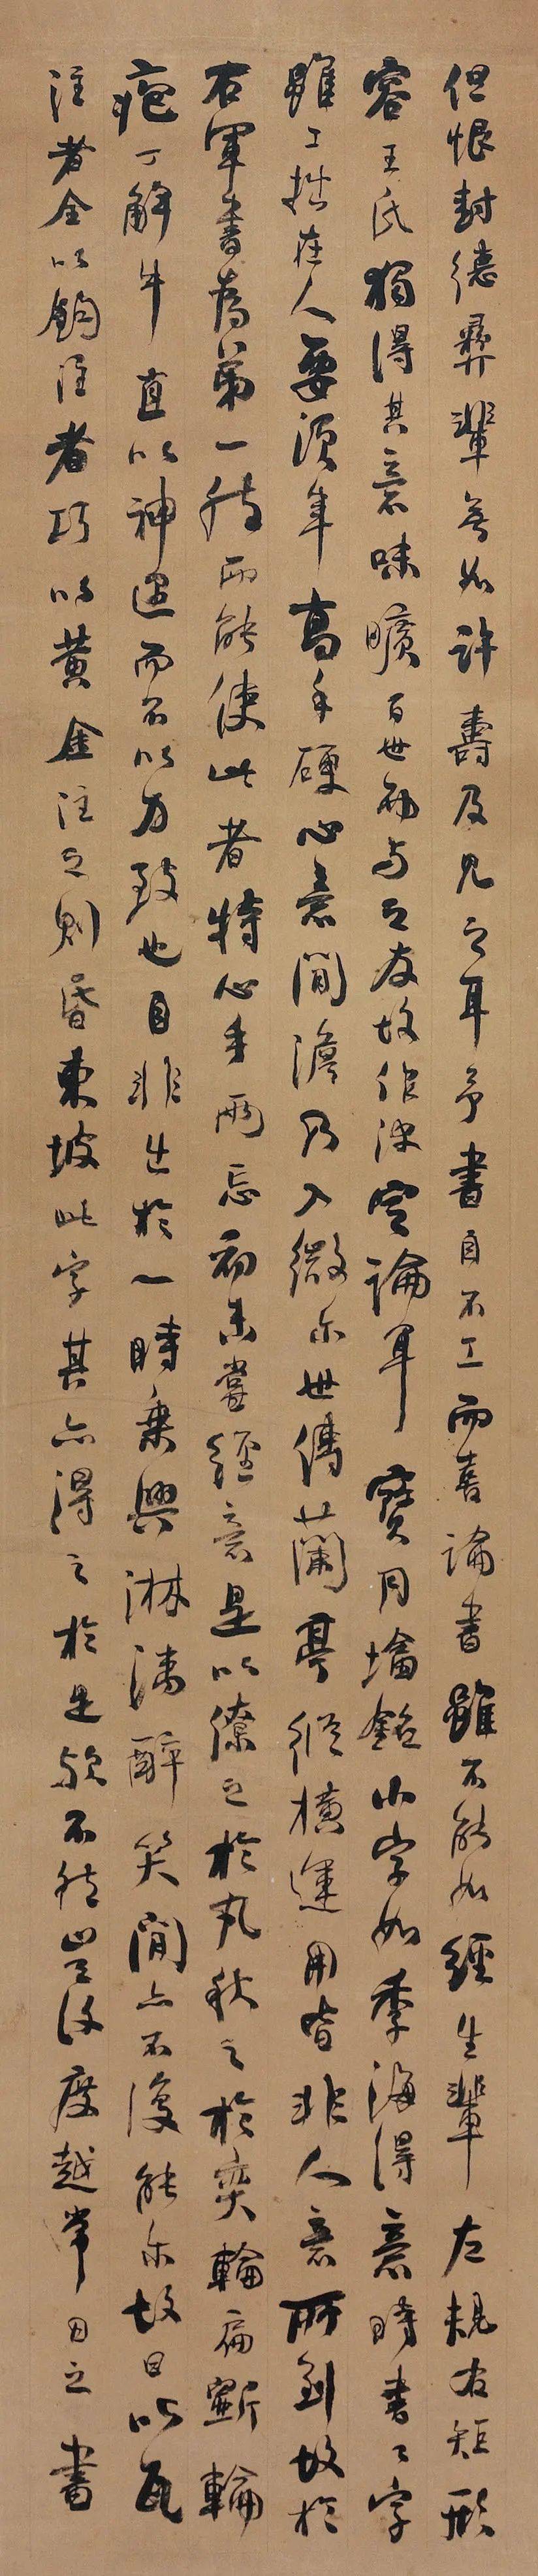 但恨封德彝輩無如許壽及見之耳予書自不工而喜論書雖不能如經生輩左規右矩形
容王氏獨得其意味曠百世而與之友故作決定論耳寶月塔銘小字如季海得意時書々字
雖工拙在人要須年高手硬心意閒澹乃入微尔世傳蘭亭縱橫運用皆非人意所到故於
右軍書為第一然而能使此者特心手兩忘初未嘗經意是以僚之於丸秋之於奕輪扁斲輪
庖丁解牛直以神遇而不以力致也自非出於一時乘興淋漓醉笑間亦不復能尔故曰以瓦
注者全以鉤注者巧以黃金注之則昏東坡此字其亦得之於是歟不然豈復度越常日之書